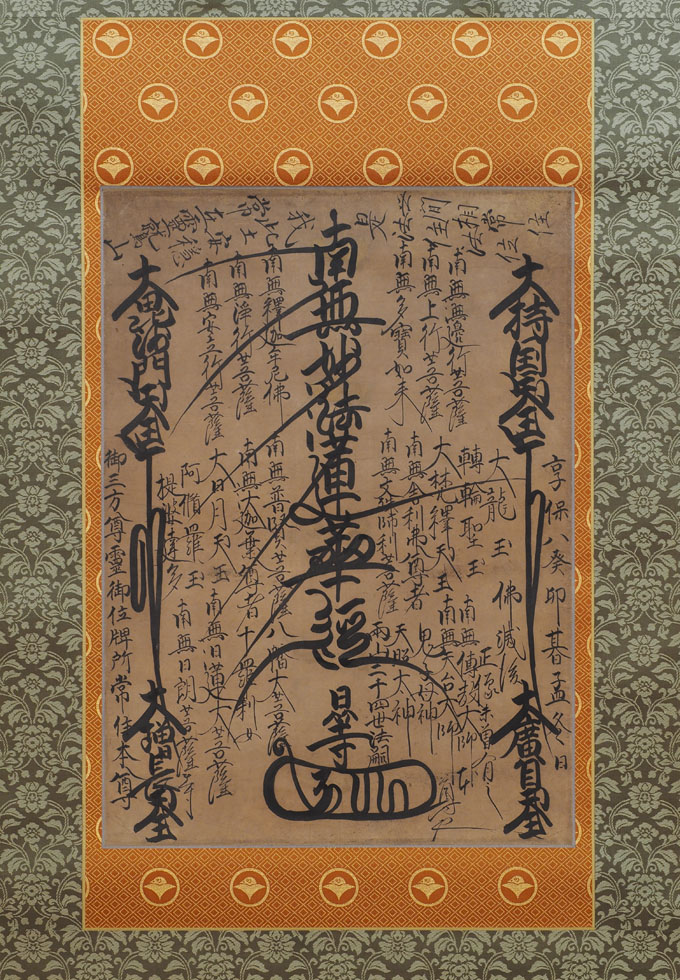 世間相常住
常在靈鷲山
享保八癸卯暮孟冬日
大持国天王
大廣目天王
大龍王
佛滅後
轉輪聖王
正像未曾有之
大梵釋天王
南無傳教大師
南無天台大師
南無無邊行菩薩
南無上行菩薩
南無多寶如来
南無舎利弗尊者
南無文殊師利菩薩
鬼子母神
天照大神
二十四世法嗣
南無妙法蓮華經
日
南無釋迦牟尼佛
南無浄行菩薩
南無安立行菩薩
南無普賢菩薩
南無大迦葉尊者
大日月天王
阿脩羅王
提婆達多
八幡大菩薩
十羅刹女
南無日蓮大菩薩
南無日朗菩薩等
大毘沙門天王
大増長天王
御三方尊靈御位牌所常住本尊